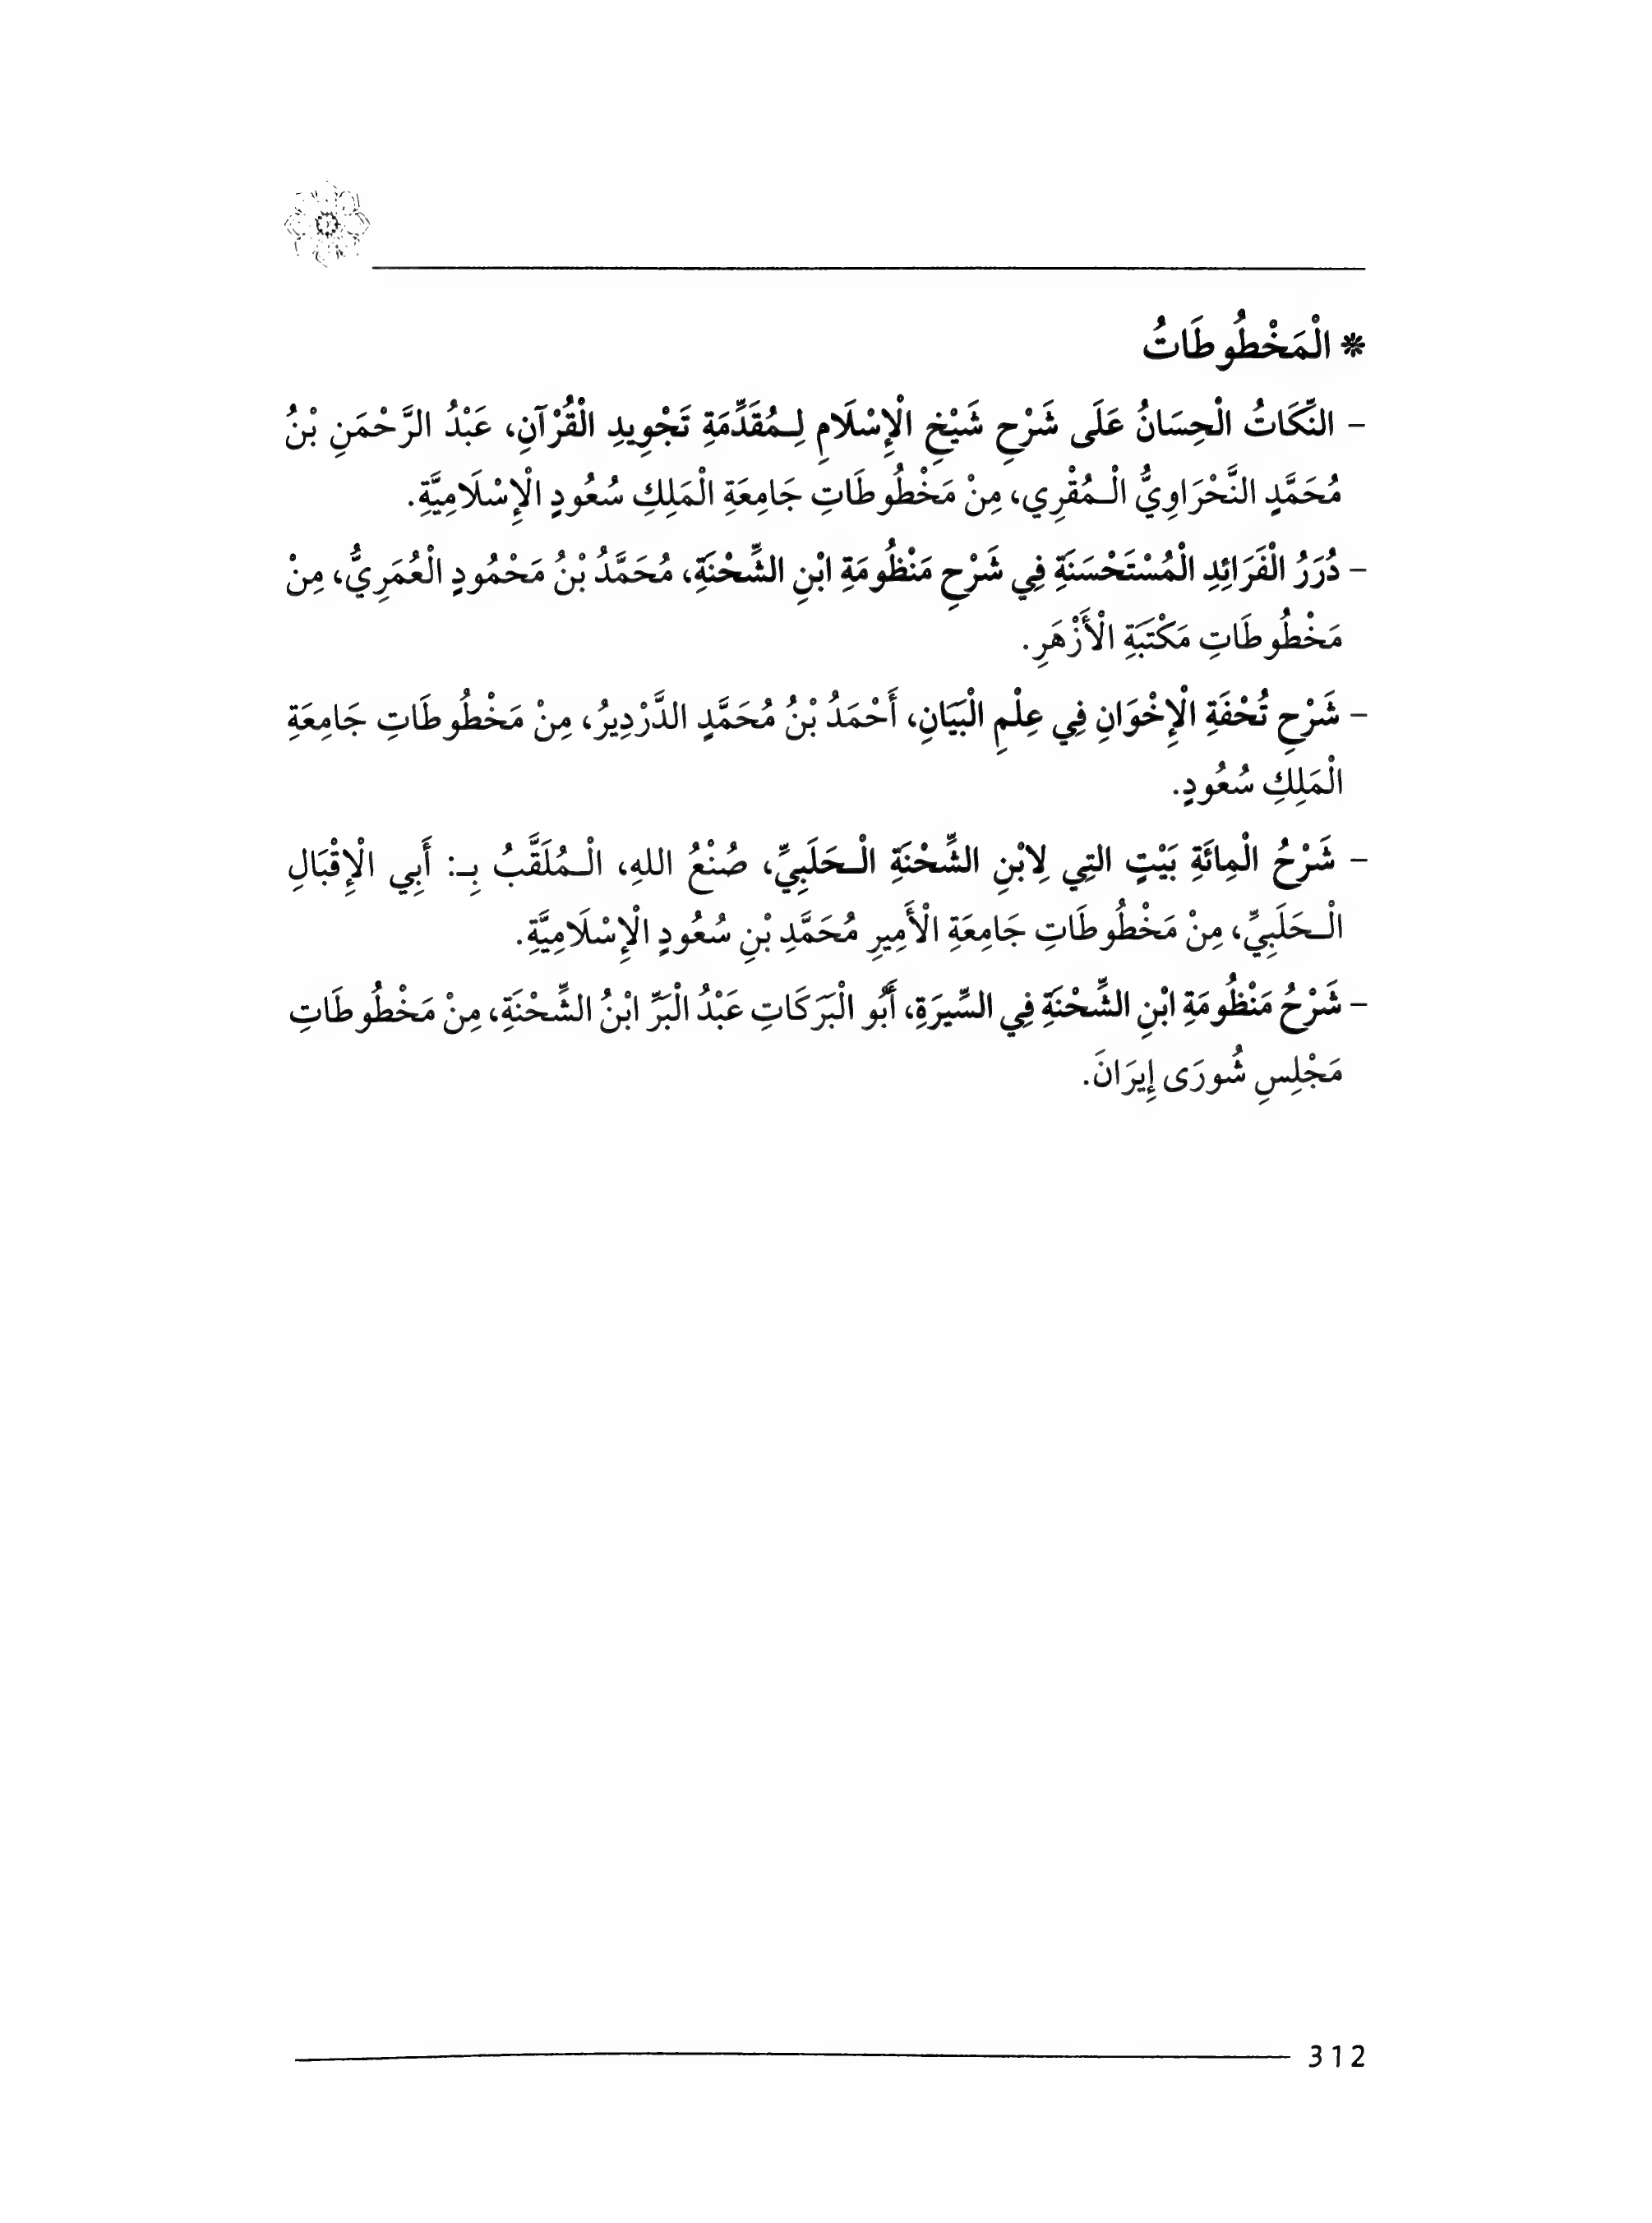 * الْمَخْطُوطَاتُ
- النِّكَاتُ الْحِسَانُ عَلَى شَرْحِ شَيْخِ الْإِسْلَامِ لِـمُقَدِّمَةِ تَجْوِيدِ الْقُرْآنِ، عَبْدُ الرَّحْمَنِ بْنُ
مُحَمَّدٍ النَّحْرَاوِيُّ الْـمُقْرِي، مِنْ مَخْطُوطَاتِ جَامِعَةِ الْمَلِكِ سُعُودٍ الْإِسْلَامِيَّةِ.
- دُرَرُ الْفَرَائِدِ الْمُسْتَحْسَنَةِ فِي شَرْحِ مَنْظُومَةِ ابْنِ الشِّحْنَةِ، مُحَمَّدُ بْنُ مَحْمُودٍ الْعُمَرِيُّ، مِنْ
مَخْطُوطَاتِ مَكْتَبَةِ الْأَزْهَرِ.
- شَرْحِ تُحْفَةِ الْإِخْوَانِ فِي عِلْمِ الْبَيَانِ، أَحْمَدُ بْنُ مُحَمَّدٍ الدَّرْدِيرُ، مِنْ مَخْطُوطَاتِ جَامِعَةِ
الْمَلِكِ سُعُودٍ.
- شَرْحُ الْمِائَةِ بَيْتٍ التِي لِابْنِ الشِّحْنَةِ الْـحَلَبِيِّ، صُنْعُ اللهِ، الْـمُلَقَّبُ بِـ: أَبِي الْإِقْبَالِ
الْـحَلَبِيِّ، مِنْ مَخْطُوطَاتِ جَامِعَةِ الْأَمِيرِ مُحَمَّدِ بْنِ سُعُودٍ الْإِسْلَامِيَّةِ.
- شَرْحُ مَنْظُومَةِ ابْنِ الشِّحْنَةِ فِي السِّيرَةِ، أَبُو الْبَرَكَاتِ عَبْدُ الْبَرِّ ابْنُ الشِّحْنَةِ، مِنْ مَخْطُوطَاتِ
مَجْلِسِ شُورَى إِيرَانَ.
312